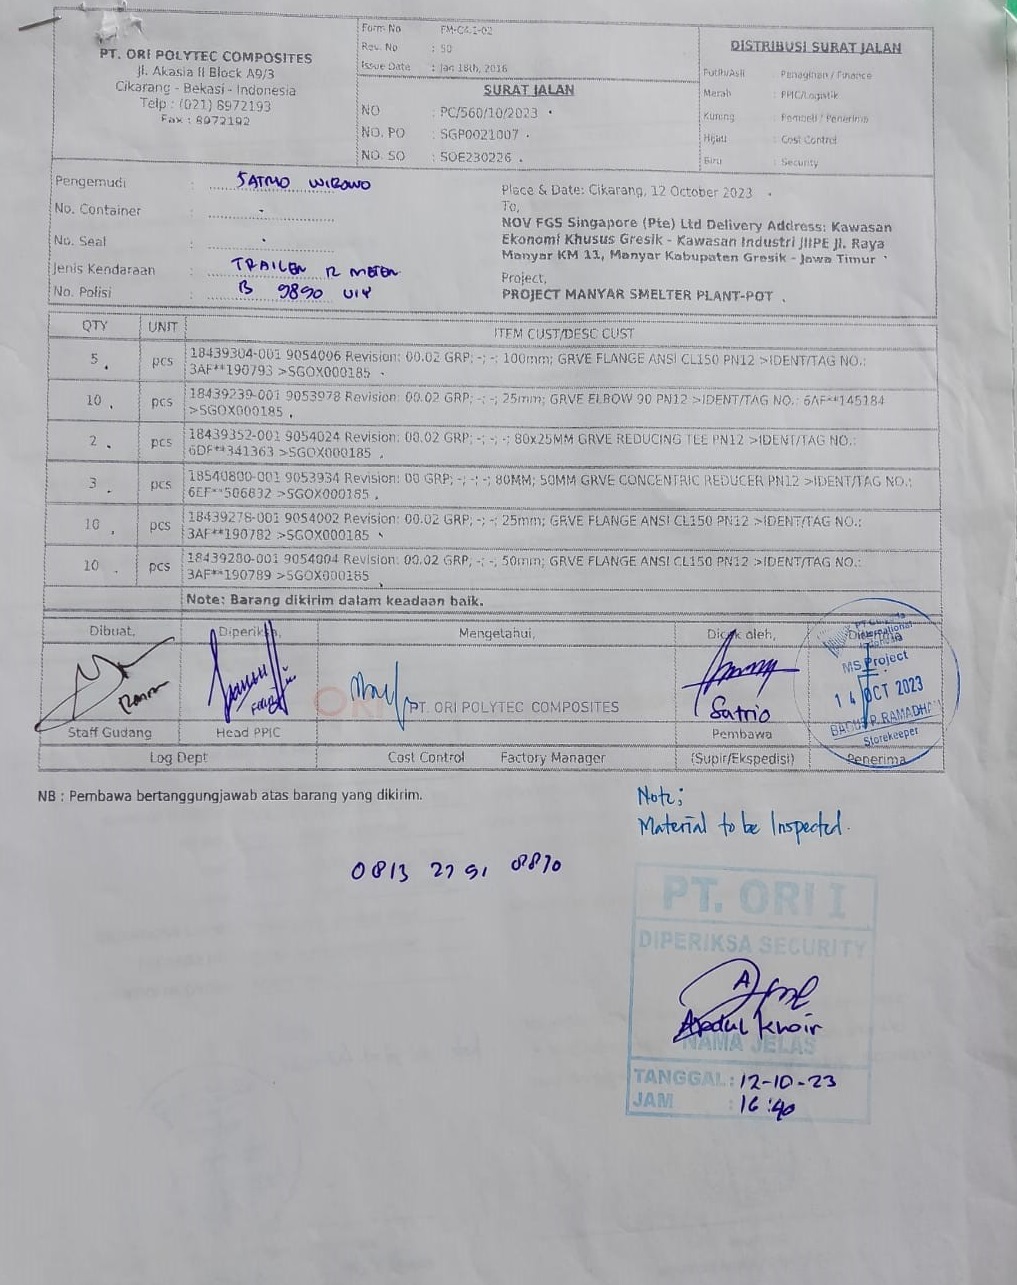 PT. ORI POLYTEC COMPOSITES
Jl. Akasia II Block A9/3
Cikarang - Bekasi - Indonesia
Telp : (021) 8972193
Fax : 8972192
Form No FM-C4.1-02
Rev. No : 50
Issue Date : Jan 18th, 2016
SURAT JALAN
NO : PC/560/10/2023
NO. PO : SGP0021007
NO. SO : SOE230226
DISTRIBUSI SURAT JALAN
Putih/Asli : Penagihan / Finance
Merah : PPIC/Logistik
Kuning : Pembeli / Penerima
Hijau : Cost Control
Biru : Security
Pengemudi : SATRIO WIBOWO
No. Container : -
No. Seal : -
Jenis Kendaraan : TRAILER 12 METER
No. Polisi : B 9890 UIY
Place & Date: Cikarang, 12 October 2023
To,
NOV FGS Singapore (Pte) Ltd Delivery Address: Kawasan
Ekonomi Khusus Gresik - Kawasan Industri JIIPE Jl. Raya
Manyar KM 11, Manyar Kabupaten Gresik - Jawa Timur
Project,
PROJECT MANYAR SMELTER PLANT-POT
QTY UNIT ITEM CUST/DESC CUST
5 pcs 18439304-001 9054006 Revision: 00.02 GRP; -; -; 100mm; GRVE FLANGE ANSI CL150 PN12 >IDENT/TAG NO.:
3AF**190793 >SGOX000185
10 pcs 18439239-001 9053978 Revision: 00.02 GRP; -; -; 25mm; GRVE ELBOW 90 PN12 >IDENT/TAG NO.: 6AF**145184
>SGOX000185
2 pcs 18439352-001 9054024 Revision: 00.02 GRP; -; -; -; 80x25MM GRVE REDUCING TEE PN12 >IDENT/TAG NO.:
6DF**341363 >SGOX000185
3 pcs 18540800-001 9053934 Revision: 00 GRP; -; -; -; 80MM; 50MM GRVE CONCENTRIC REDUCER PN12 >IDENT/TAG NO.:
6EF**506832 >SGOX000185
10 pcs 18439278-001 9054002 Revision: 00.02 GRP; -; -; 25mm; GRVE FLANGE ANSI CL150 PN12 >IDENT/TAG NO.:
3AF**190782 >SGOX000185
10 pcs 18439280-001 9054004 Revision: 00.02 GRP; -; -; 50mm; GRVE FLANGE ANSI CL150 PN12 >IDENT/TAG NO.:
3AF**190789 >SGOX000185
Note: Barang dikirim dalam keadaan baik.
Dibuat, Diperiksa, Mengetahui, Dicek oleh,
International
MS Project
14 OCT 2023
BAGUS P. RAMADHAN
Storekeeper
ORI PT. ORI POLYTEC COMPOSITES
Satrio
Staff Gudang Head PPIC Pembawa
Log Dept Cost Control Factory Manager (Supir/Ekspedisi) Penerima
NB : Pembawa bertanggungjawab atas barang yang dikirim.
Note;
Material to be Inspected.
0813 2791 8870
PT. ORI I
DIPERIKSA SECURITY
Abdul Khoir
NAMA JELAS
TANGGAL : 12-10-23
JAM : 16:40